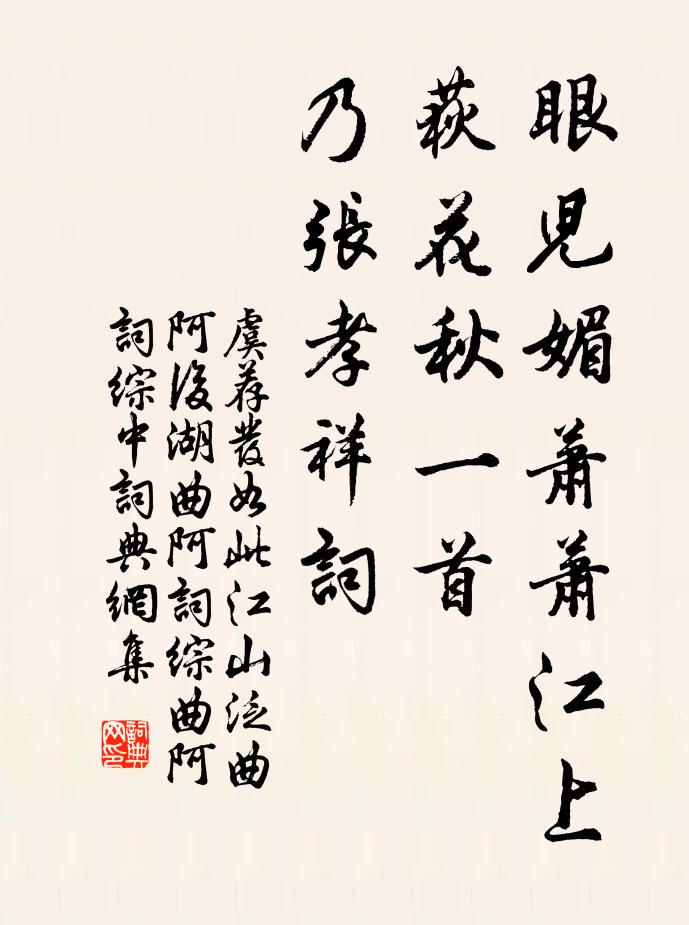 眼兒媚蕭蕭江上
荻花秋一首
乃張孝祥詞
虞荐發如此江山泛曲
阿後湖曲阿詞綜曲阿
詞綜中詞典網集
詞典
网印